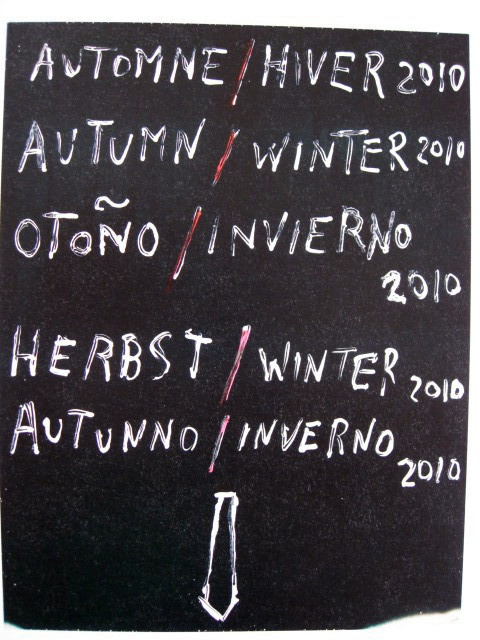 AUTOMNE/HIVER 2010
AUTUMN/WINTER 2010
OTOÑO/INVIERNO
2010
HERBST/WINTER 2010
AUTUNNO/INVERNO
2010